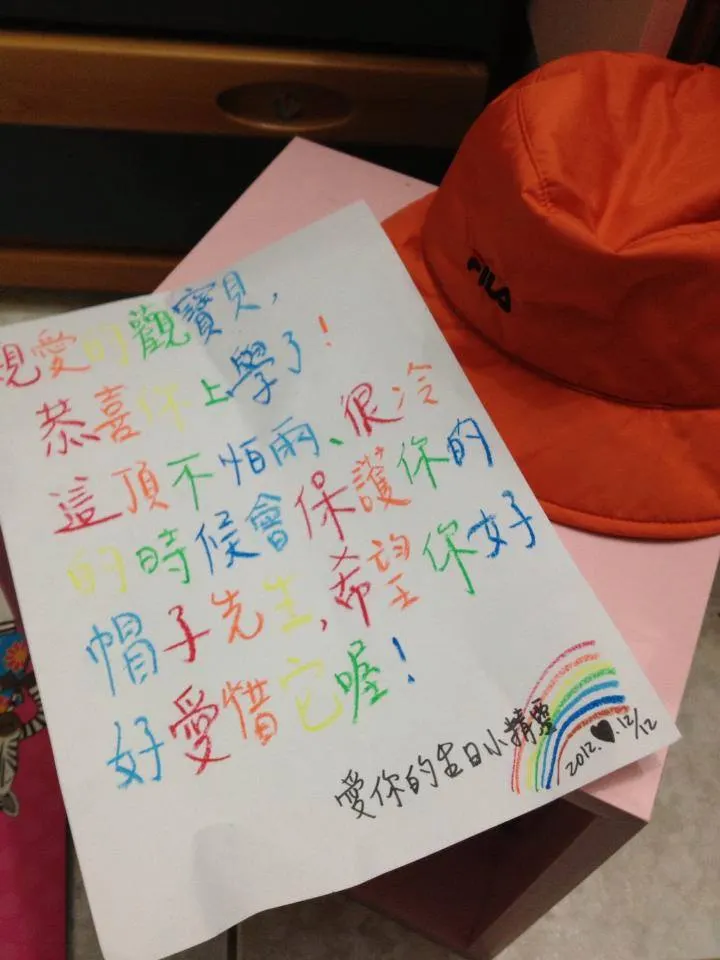 親愛的觀寶貝,
恭喜你上學了!
這頂不怕雨、很冷
的時候會保護你的
帽子先生,希望你好
好愛惜它喔!
愛你的生日小精靈
2012.♥.12/12
FILA